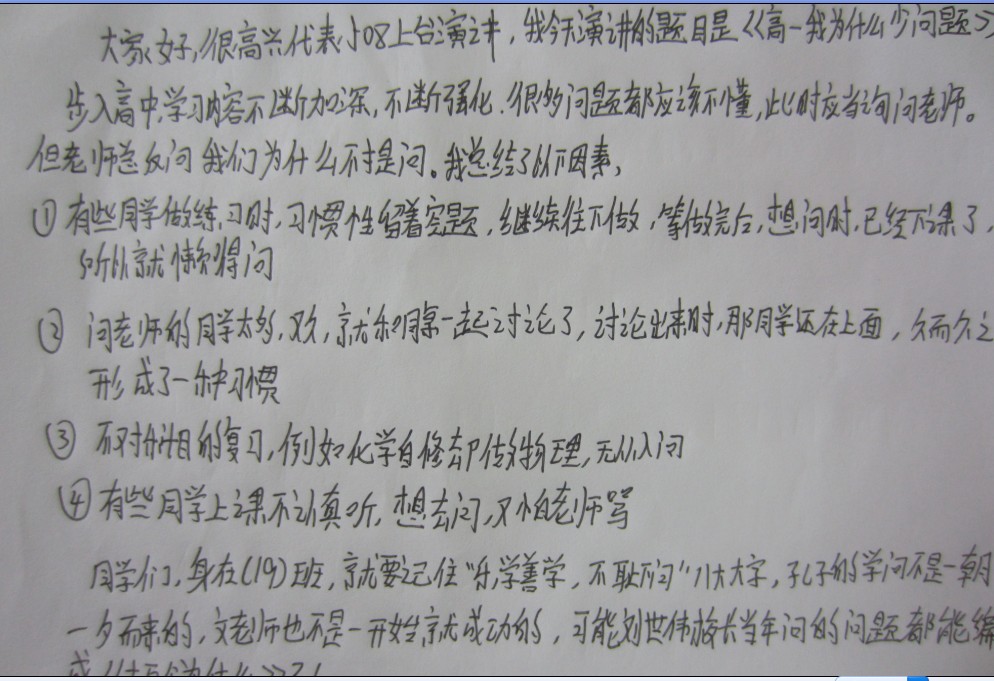 大家好,很高兴代表508上台演讲,我今天演讲的题目是《高一我为什么少问题》
步入高中,学习内容不断加深,不断强化.很多问题都应该不懂,此时应当询问老师。
但老师总反问我们为什么不提问。我总结了以下因素,
① 有些同学做练习时,习惯性留着空题,继续往下做,等做完后,想问时,已经下课了,
所以就懒得问
② 问老师的同学太多,欢,就和同桌一起讨论了,讨论出来时,那同学还在上面,久而久之
形成了一种习惯
③ 不对科目的复习,例如化学自修却做物理,无从入问
④ 有些同学上课不认真听,想去问,又怕老师骂
同学们,身在(19)班,就要记住“乐学善学,不耻下问”八大大字,孔子的学问不是一朝
一夕而来的,文老师也不是一开始就成功的,可能刘世伟校长当年问的问题都能编
成《十万个为什么》了!